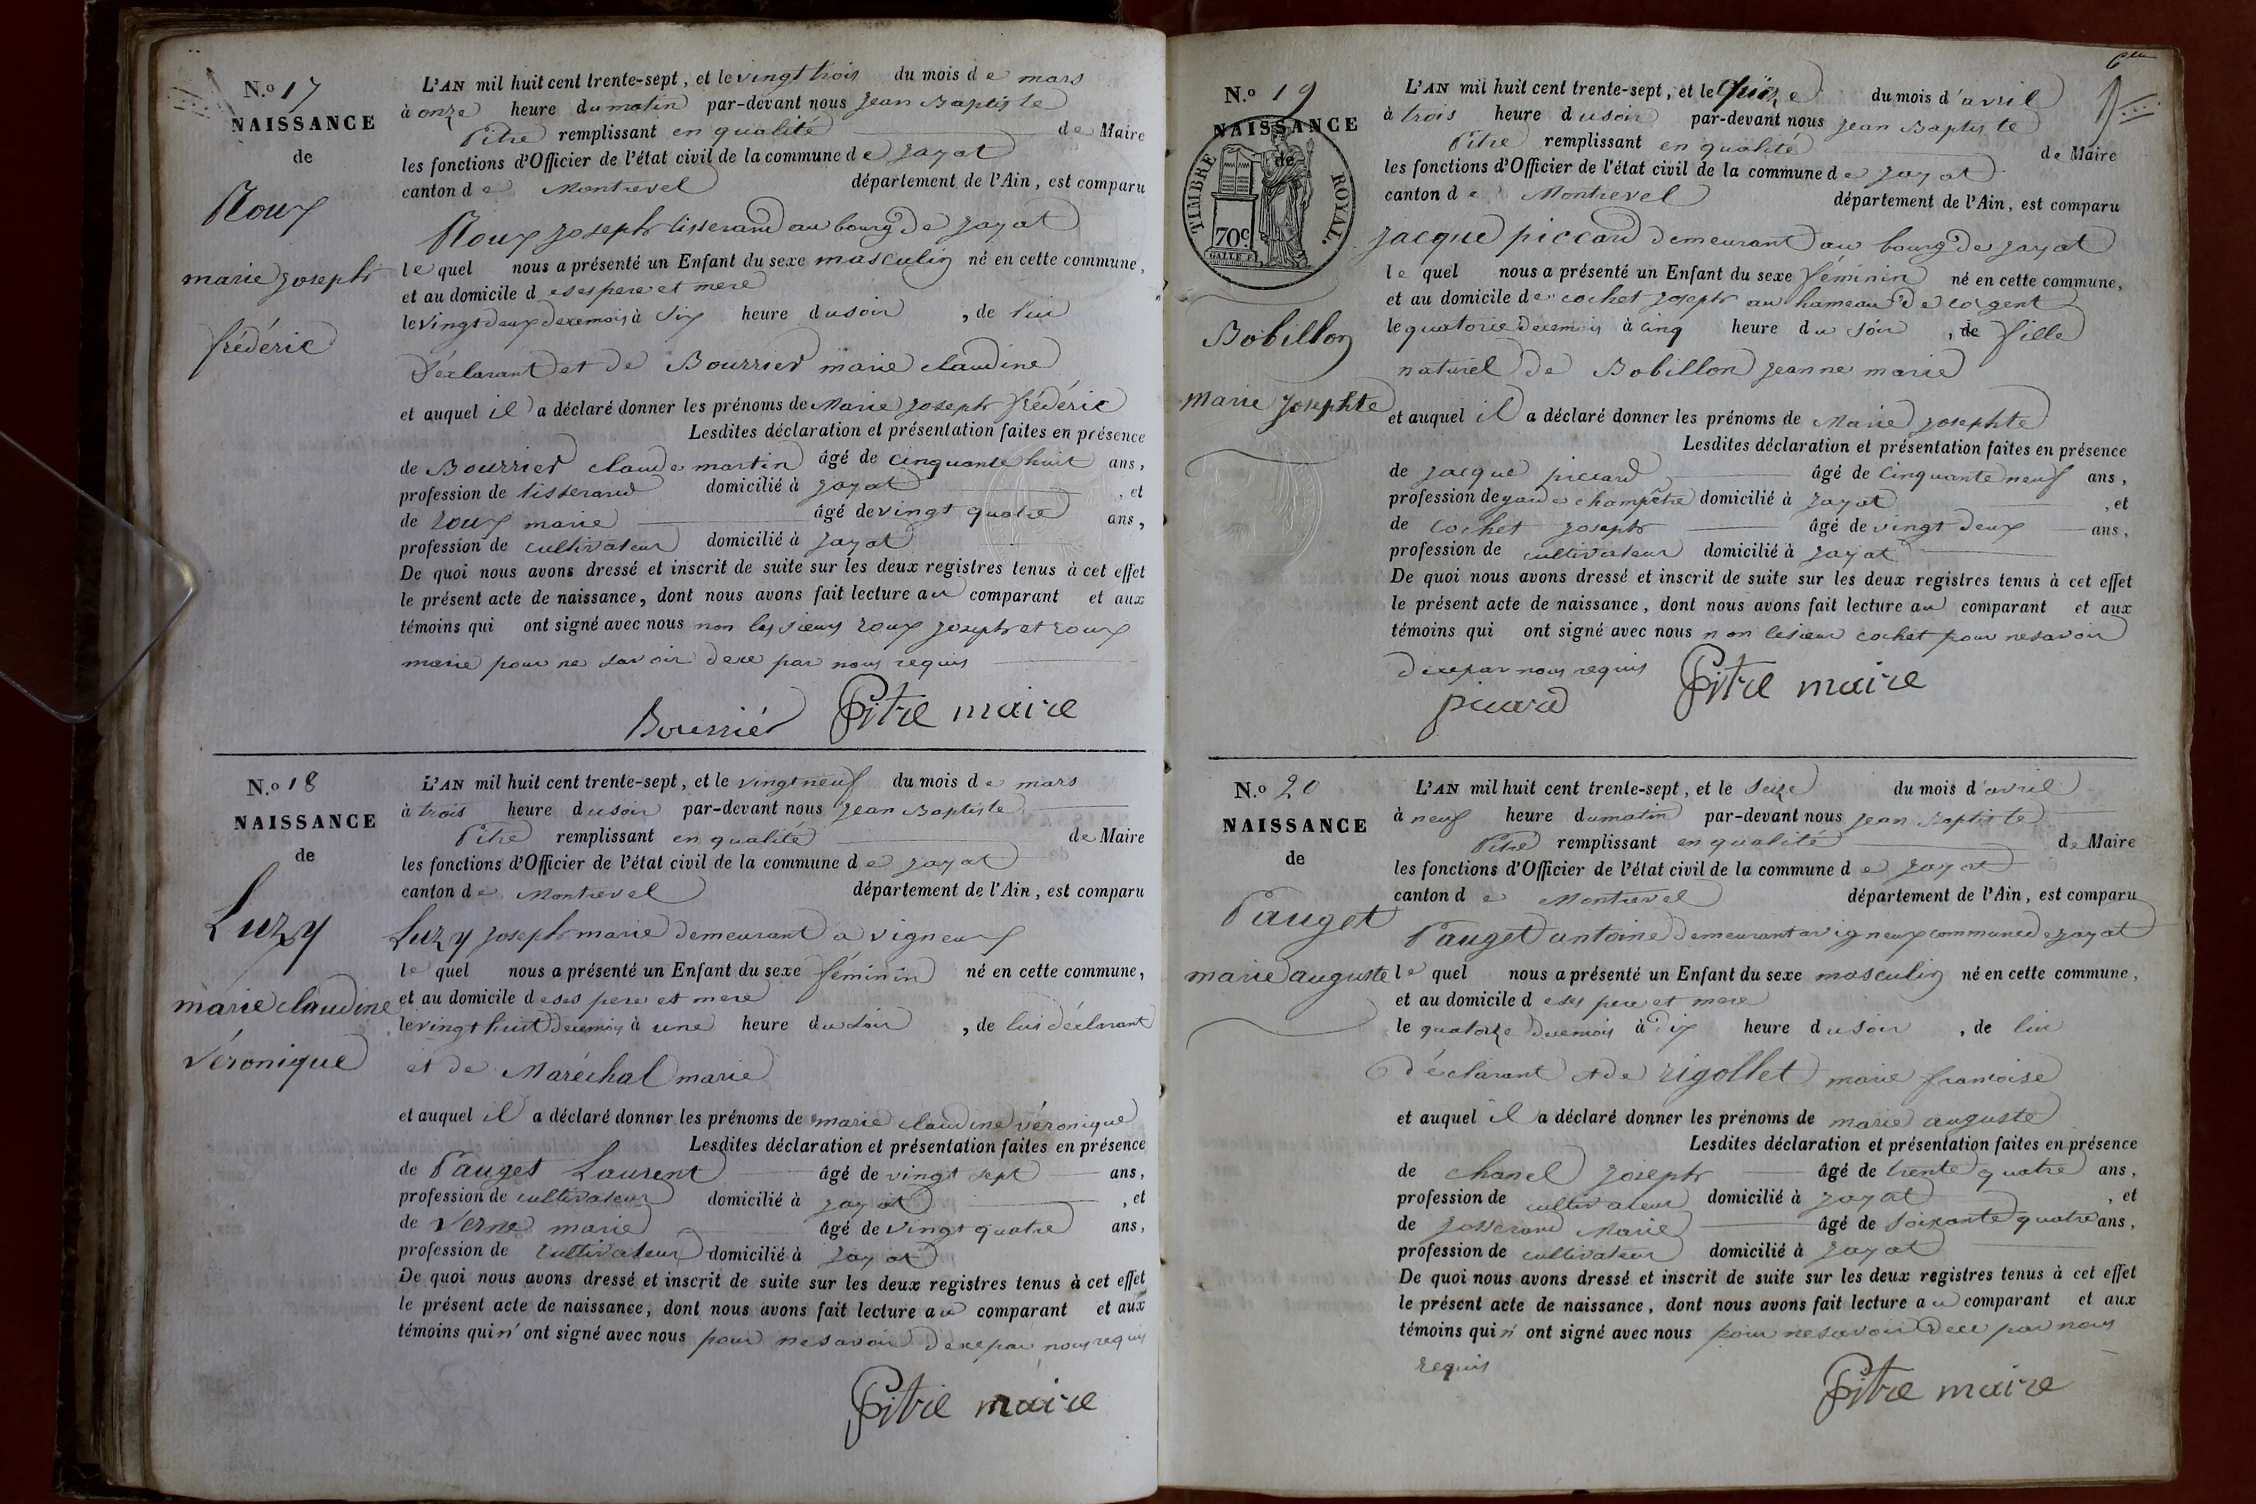 N.o 17
NAISSANCE
de
Roux
marie joseph
frédéric
L'AN mil huit cent trente-sept, et le vingt trois du mois de mars
à onze heure du matin par-devant nous jean Baptiste
Pitre remplissant en qualité de Maire
les fonctions d'Officier de l'état civil de la commune de jayat
canton de Montrevel département de l'Ain, est comparu
Roux joseph tisserand au bourg de jayat
le quel nous a présenté un Enfant du sexe masculin né en cette commune,
et au domicile de ses pere et mere
le vingt deux de ce mois à six heure du soir , de lui
déclarant et de Bourrier marie claudine
et auquel il a déclaré donner les prénoms de Marie joseph frédéric
Lesdites déclaration et présentation faites en présence
de Bourrier claude martin âgé de cinquante huit ans,
profession de tisserand domicilié à jayat , et
de roux marie âgé de vingt quatre ans,
profession de cultivateur domicilié à jayat
De quoi nous avons dressé et inscrit de suite sur les deux registres tenus à cet effet
le présent acte de naissance, dont nous avons fait lecture au comparant et aux
témoins qui ont signé avec nous non les sieurs roux joseph et roux
marie pour ne savoir de ce par nous requis
Bourrier Pitre maire
N.o 18
NAISSANCE
de
Luzy
marie claudine
véronique
L'AN mil huit cent trente-sept, et le vingt neuf du mois de mars
à trois heure du soir par-devant nous jean Baptiste
Pitre remplissant en qualité de Maire
les fonctions d'Officier de l'état civil de la commune de jayat
canton de Montrevel département de l'Ain, est comparu
Luzy joseph marie demeurant a vigneux
le quel nous a présenté un Enfant du sexe féminin né en cette commune,
et au domicile de ses pere et mere
le vingt huit de ce mois à une heure du soir , de lui déclarant
et de Maréchal marie
et auquel il a déclaré donner les prénoms de marie claudine véronique
Lesdites déclaration et présentation faites en présence
de Pauget Laurent âgé de vingt sept ans,
profession de cultivateur domicilié à jayat , et
de Verne marie âgé de vingt quatre ans,
profession de cultivateur domicilié à jayat
De quoi nous avons dressé et inscrit de suite sur les deux registres tenus à cet effet
le présent acte de naissance, dont nous avons fait lecture au comparant et aux
témoins qui n' ont signé avec nous pour ne savoir de ce par nous requis
Pitre maire
N.o 19
NAISSANCE
de
TIMBRE ROYAL.
70c
GALLE F.
Bobillon
Marie josephte
L'AN mil huit cent trente-sept, et le Quinze du mois d'avril
à trois heure du soir par-devant nous jean Baptiste
Pitre remplissant en qualité de Maire
les fonctions d'Officier de l'état civil de la commune de jayat
canton de Montrevel département de l'Ain, est comparu
jacque piccard demeurant au bourg de jayat
le quel nous a présenté un Enfant du sexe féminin né en cette commune,
et au domicile de cochet joseph au hameau de corgent
le quatorze de ce mois à cinq heure du soir , de fille
naturel de Bobillon jeanne marie
et auquel il a déclaré donner les prénoms de Marie josephte
Lesdites déclaration et présentation faites en présence
de jacque piccard âgé de cinquante neuf ans,
profession de garde champêtre domicilié à jayat , et
de cochet joseph âgé de vingt deux ans,
profession de cultivateur domicilié à jayat
De quoi nous avons dressé et inscrit de suite sur les deux registres tenus à cet effet
le présent acte de naissance, dont nous avons fait lecture au comparant et aux
témoins qui ont signé avec nous non le sieur cochet pour ne savoir
de ce par nous requis
picard Pitre maire
N.o 20
NAISSANCE
de
Pauget
marie auguste
L'AN mil huit cent trente-sept, et le seize du mois d'avril
à neuf heure du matin par-devant nous jean Baptiste
Pitre remplissant en qualité de Maire
les fonctions d'Officier de l'état civil de la commune de jayat
canton de Montrevel département de l'Ain, est comparu
Pauget antoine demeurant a vigneux commune de jayat
le quel nous a présenté un Enfant du sexe masculin né en cette commune,
et au domicile de ses pere et mere
le quatorze de ce mois à dix heure du soir , de lui
déclarant et de rigollet marie francoise
et auquel il a déclaré donner les prénoms de marie auguste
Lesdites déclaration et présentation faites en présence
de chanel joseph âgé de trente quatre ans,
profession de cultivateur domicilié à jayat , et
de josserand Marie âgé de soixante quatre ans,
profession de cultivateur domicilié à jayat
De quoi nous avons dressé et inscrit de suite sur les deux registres tenus à cet effet
le présent acte de naissance, dont nous avons fait lecture au comparant et aux
témoins qui n' ont signé avec nous pour ne savoir de ce par nous
requis
Pitre maire